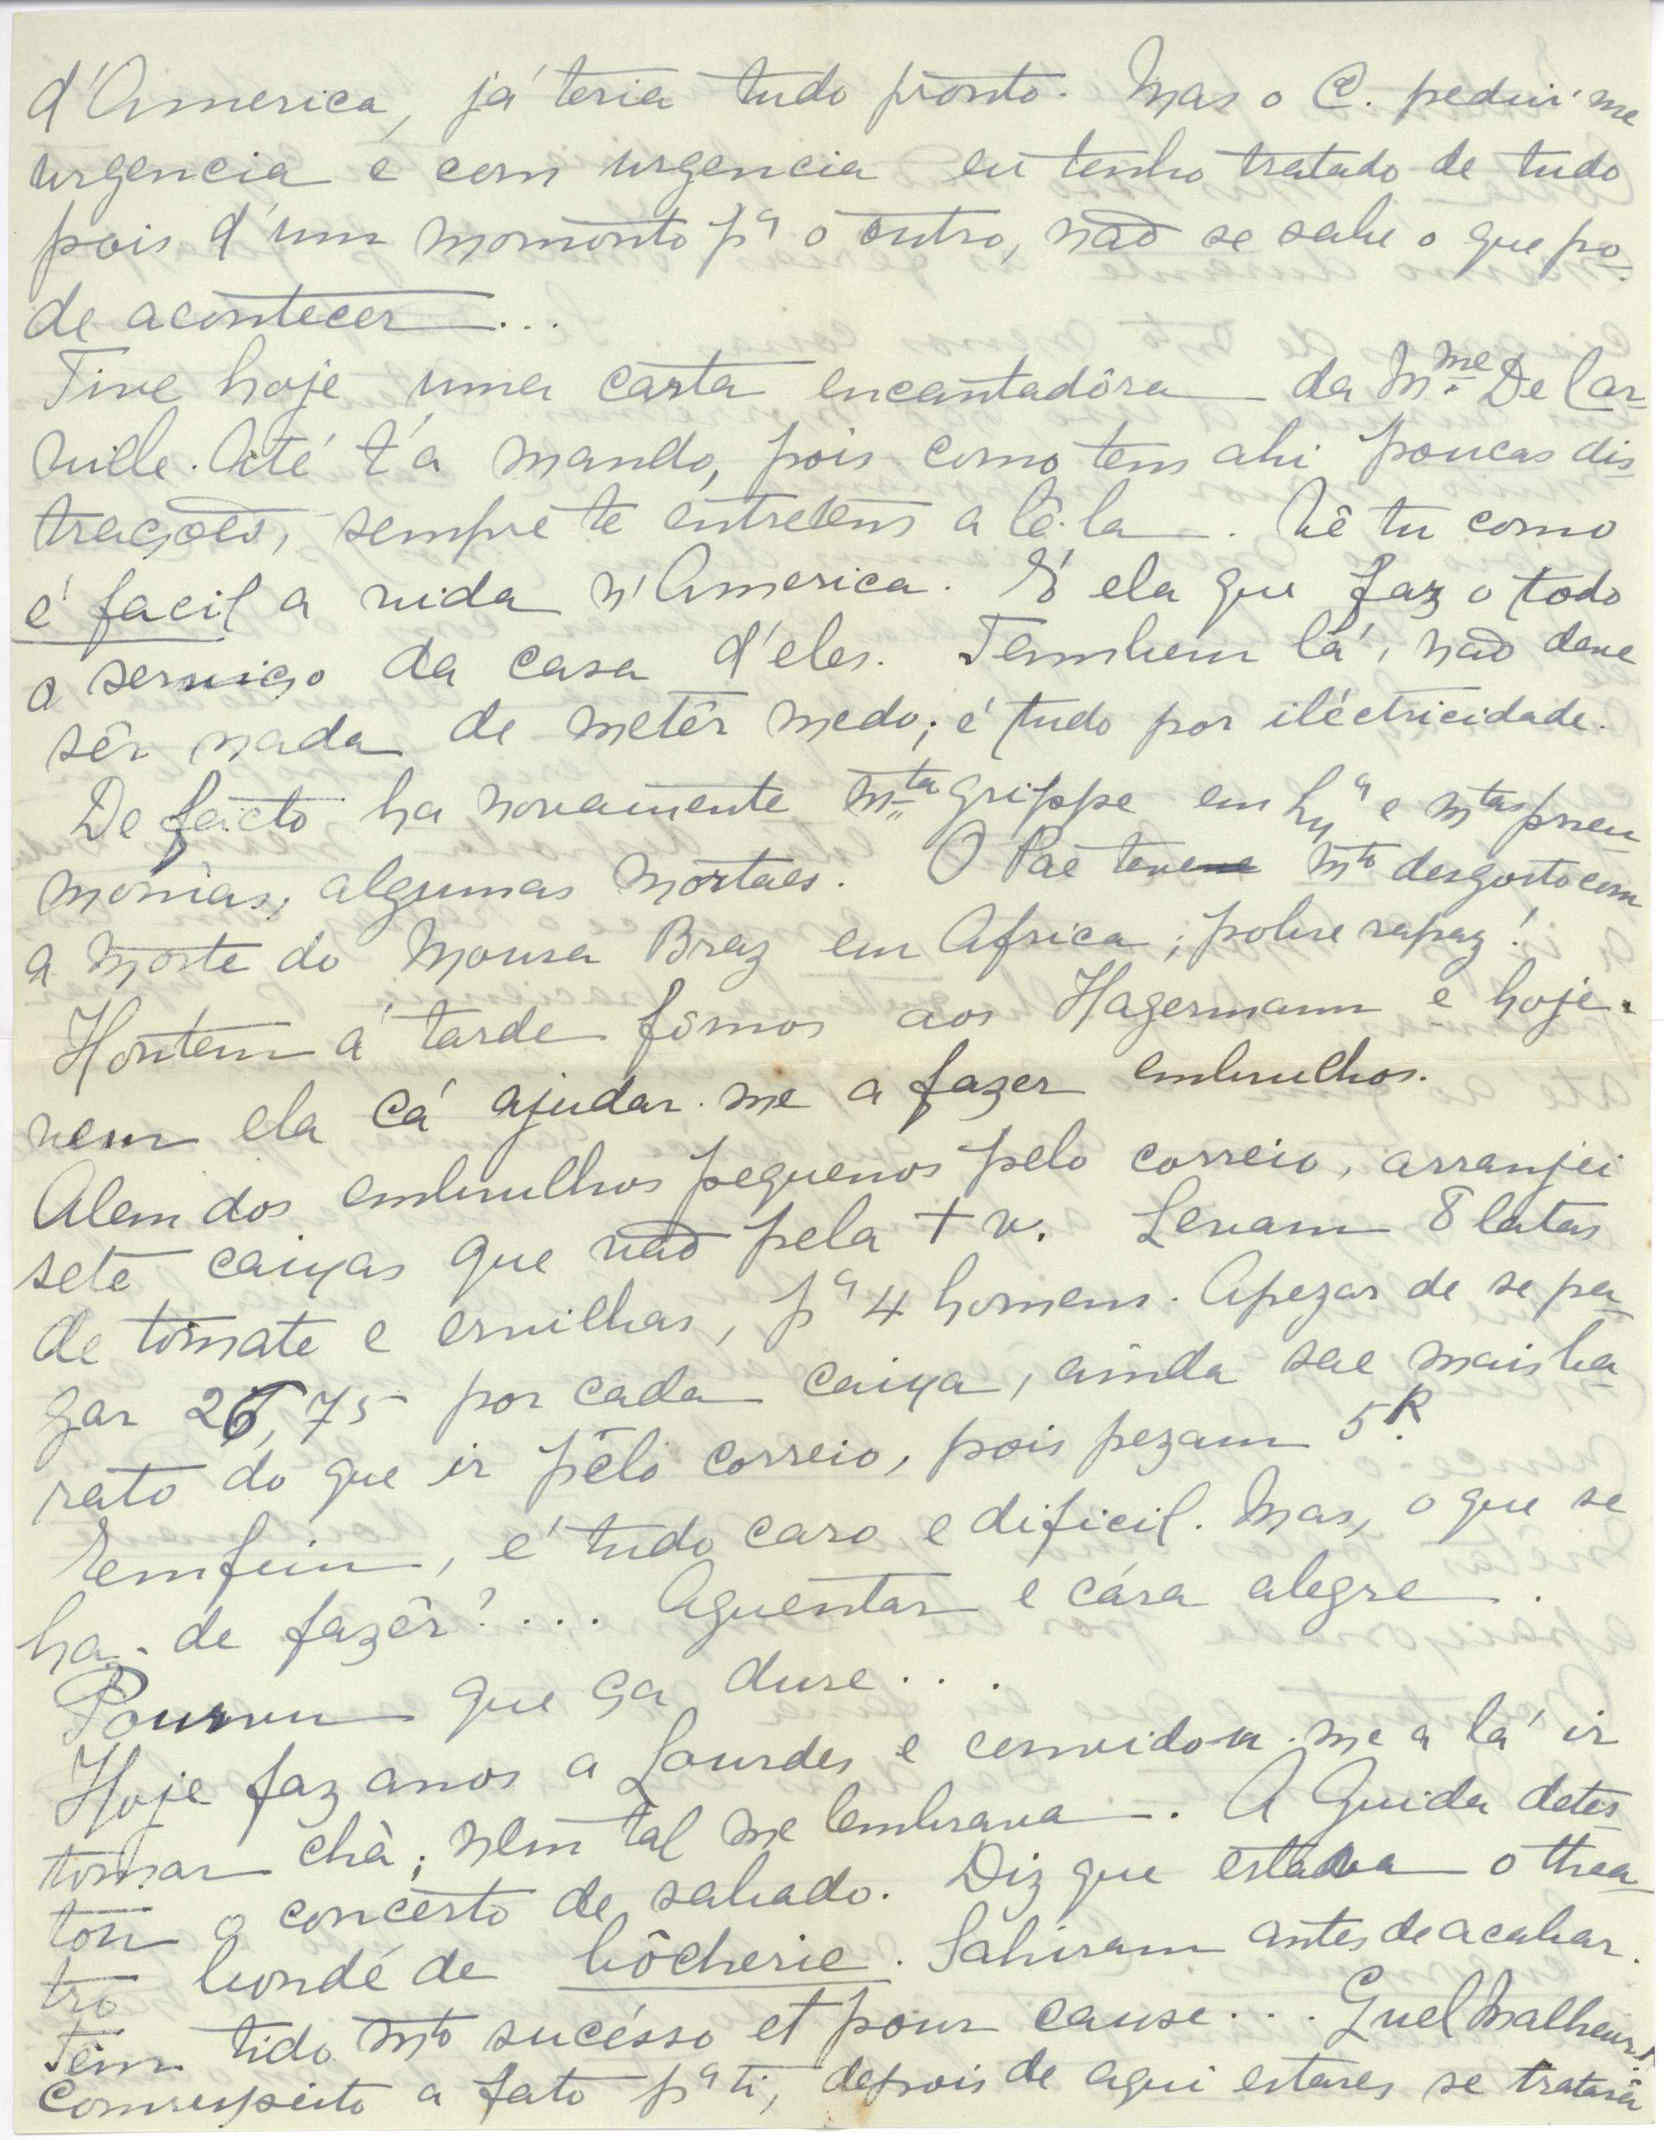 d'America, já teria tudo pronto. Mas o C. pediu-me
urgencia e com urgencia eu tenho tratado de tudo
pois d'um momento pª o outro, não se sabe o que po-
de acontecer...
Tive hoje uma carta encantadôra da Mme De Car-
ville. Até t'a mando, pois como tens ahi poucas dis-
trações, sempre te entretens a lê-la. Vê tu como
é facil a vida n'America. É ela que faz o todo
o serviço da casa d'eles. Tambem lá, não deve
sêr nada de metêr medo; é tudo por iléctricidade.
De facto ha novamente mta grippe em Lxª e mtas pneu-
monias, algumas mortaes. O Pae teve mto desgosto com
a morte do Mousa Braz em Africa; pobre rapaz!
Hontem á tarde fômos aos Hagermann e hoje
vem ela cá ajudar-me a fazer embrulhos.
Alem dos embrulhos pequenos pelo correio, arranjei
sete caixas que vão pela + v. Levam 8 latas
de tomate e ervilhas, pª 4 homens. Apezar de se pa-
gar 26,75 por cada caixa, ainda sae mais ba-
rato do que ir pêlo correio, pois pezam 5K.
Emfim, é tudo caro e dificil. Mas, o que se
ha-de fazêr?... Aguentar e cára alegre.
Pourvu que ça dure...
Hoje faz anos a Lourdes e convidou-me a lá ir
tomar chà; nem tal me lembrava. A Guida detes-
tou o concerto de sabado. Diz que estava o thea-
tro bondé de bôcherie. Sahiram antes de acabar.
Têm tido mto sucésso et pour cause... Quel Malheur!
Com respeito a fato pª ti, depois de aqui estares se tratará